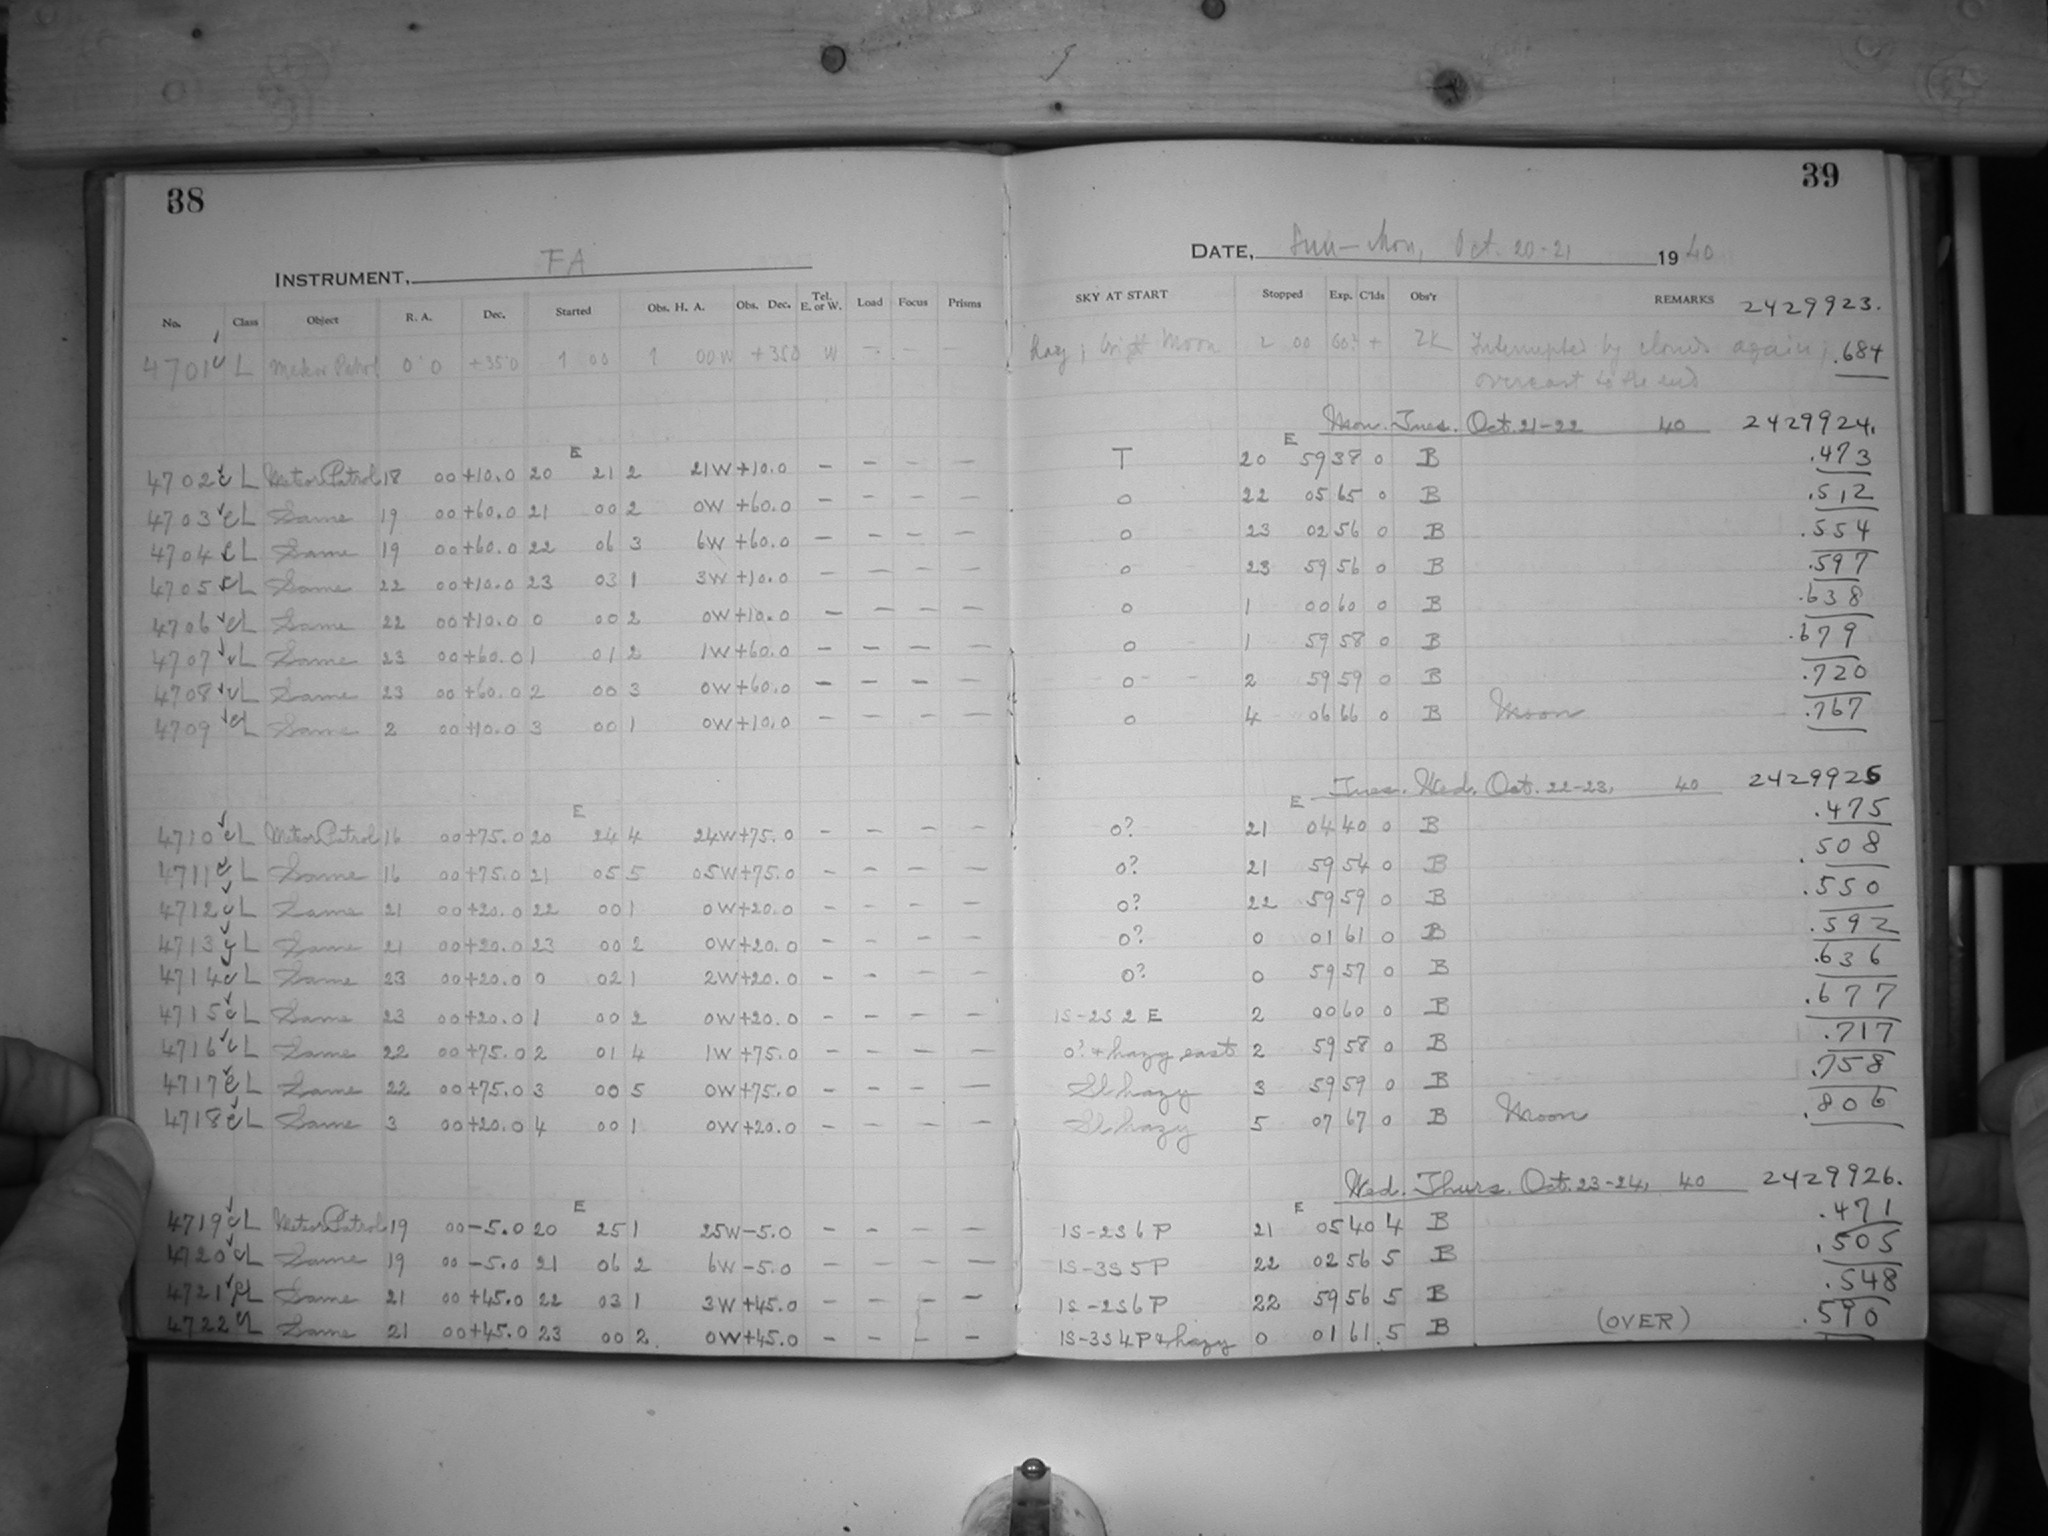 38
39
INSTRUMENT, FA
DATE, Sun-Mon, Oct. 20-21 1940
No. Class Object R. A. Dec. Started Obs. H. A. Obs. Dec. Tel. E. or W. Load Focus Prisms SKY AT START Stopped Exp. C'lds Obs'r REMARKS 2429923.
4701 L Meteor Patrol 0 0 +35 0 1 00 1 00W +35 0 W - - - hazy; Moon 2 00 60 + Interrupted by clouds again; .684
overcast to the end
Mon. Tues. Oct. 21-22 40 2429924.
E E
4702 L Meteor Patrol 18 00 +10.0 20 21 2 21W +10.0 - - - - T 20 59 38 0 B .473
4703 L Same 19 00 +60.0 21 00 2 0W +60.0 - - - - 0 22 05 65 0 B .512
4704 L Same 19 00 +60.0 22 06 3 6W +60.0 - - - - 0 23 02 56 0 B .554
4705 L Same 22 00 +10.0 23 03 1 3W +10.0 - - - - 0 23 59 56 0 B .597
4706 L Same 22 00 +10.0 0 00 2 0W +10.0 - - - - 0 1 00 60 0 B .638
4707 L Same 23 00 +60.0 1 01 2 1W +60.0 - - - - 0 1 59 58 0 B .679
4708 L Same 23 00 +60.0 2 00 3 0W +60.0 - - - - 0 2 59 59 0 B .720
4709 L Same 2 00 +10.0 3 00 1 0W +10.0 - - - - 0 4 06 66 0 B Moon .767
Tues. Wed. Oct. 22-23, 40 2429925
E E
4710 L Meteor Patrol 16 00 +75.0 20 24 4 24W +75.0 - - - - 0? 21 04 40 0 B .475
4711 L Same 16 00 +75.0 21 05 5 05W +75.0 - - - - 0? 21 59 54 0 B .508
4712 L Same 21 00 +20.0 22 00 1 0W +20.0 - - - - 0? 22 59 59 0 B .550
4713 L Same 21 00 +20.0 23 00 2 0W +20.0 - - - - 0? 0 01 61 0 B .592
4714 L Same 23 00 +20.0 0 02 1 2W +20.0 - - - - 0? 0 59 57 0 B .636
4715 L Same 23 00 +20.0 1 00 2 0W +20.0 - - - - 1S-2S 2 E 2 00 60 0 B .677
4716 L Same 22 00 +75.0 2 01 4 1W +75.0 - - - - 0? + hazy east 2 59 58 0 B .717
4717 L Same 22 00 +75.0 3 00 5 0W +75.0 - - - - Sl hazy 3 59 59 0 B .758
4718 L Same 3 00 +20.0 4 00 1 0W +20.0 - - - - Sl hazy 5 07 67 0 B Moon .806
Wed. Thurs. Oct. 23-24, 40 2429926.
E E
4719 L Meteor Patrol 19 00 -5.0 20 25 1 25W -5.0 - - - - 1S-2S 6 P 21 05 40 4 B .471
4720 L Same 19 00 -5.0 21 06 2 6W -5.0 - - - - 1S-3S 5 P 22 02 56 5 B .505
4721 L Same 21 00 +45.0 22 03 1 3W +45.0 - - - - 1S-2S 6 P 22 59 56 5 B .548
4722 L Same 21 00 +45.0 23 00 2 0W +45.0 - - - - 1S-3S 4 P + hazy 0 01 61 5 B (OVER) .590